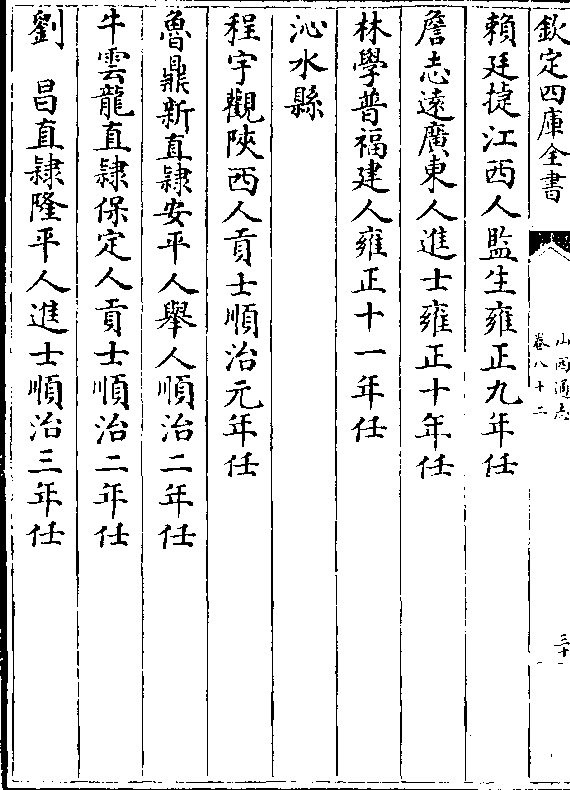 欽定四庫全書
山西通志
卷八十二
三十
賴廷捷江西人監生雍正九年任
詹志遠廣東人進士雍正十年任
林學普福建人雍正十一年任
沁水縣
程宇觀陝西人貢士順治元年任
魯鼎新直隸安平人舉人順治二年任
牛雲龍直隸保定人貢士順治二年任
劉　昌直隸隆平人進士順治三年任